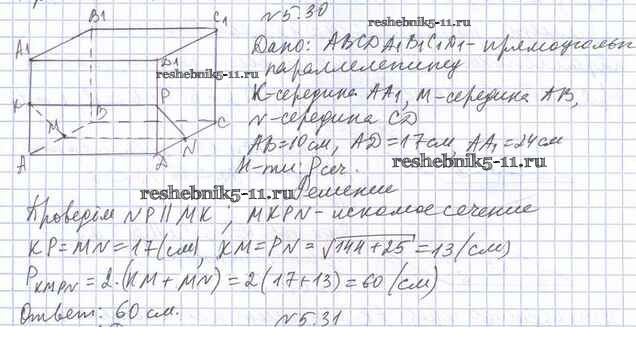 №5.30
reshebnik5-11.ru
Дано: ABCDA1B1C1D1 - прямоугольн
параллелепипед
reshebnik5-11.ru
K-середина AA1, M-середина AB,
N-середина CD
AB=10см, AD=17см, AA1=24см
Н-ти: Pсеч.
reshebnik5-11.ru
Решение
Проведём NP || MK ; MKPN - искомое сечение
KP=MN=17(см), KM=PN=√144+25=13(см)
PKMPN=2·(KM+MN)=2(17+13)=60(см)
Ответ: 60 см.
№5.31
A1 B1 C1 D1
K P
M B C
A D N